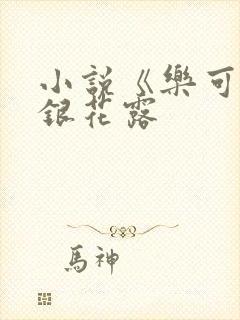 小說《樂可
銀花露
馬神